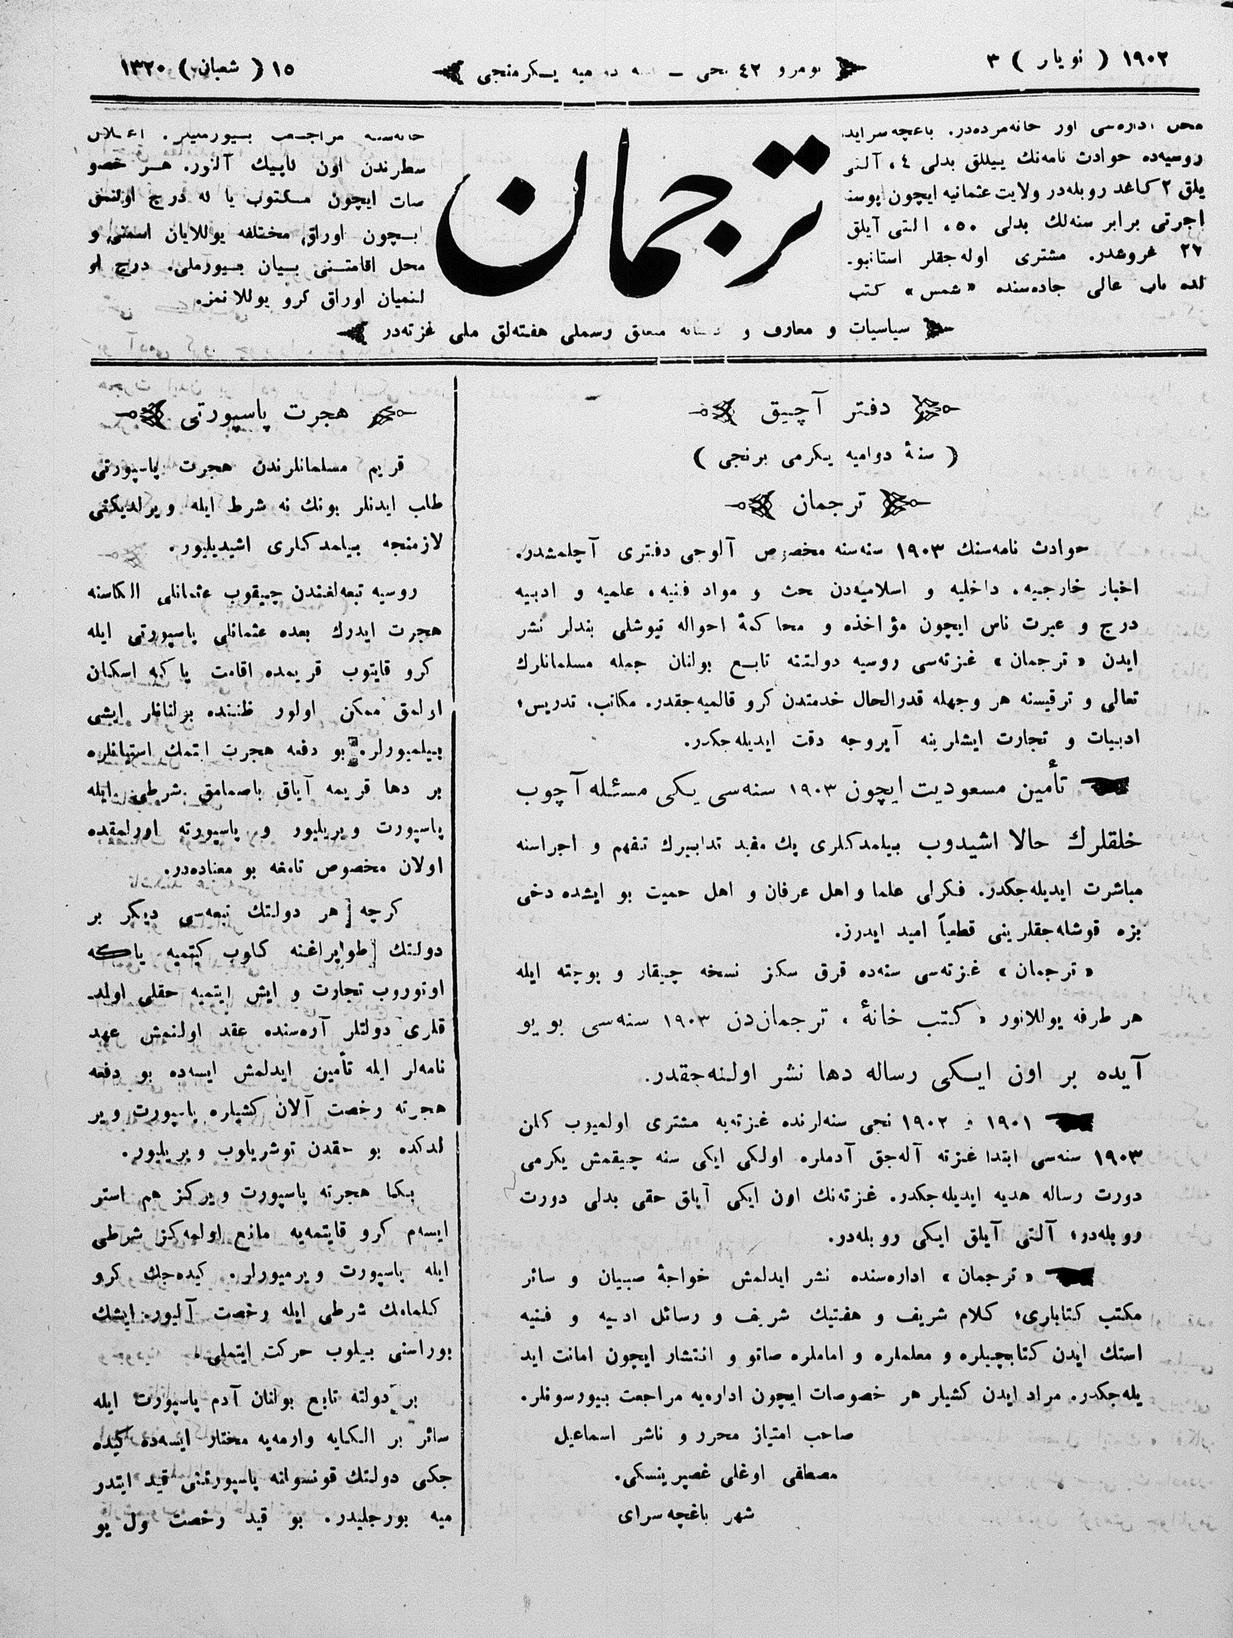 ١٩٠٢ ( نویار ) ٣
نومرو ٤٢ نجی – سنه دوامیه یکرمنجی
١٥ ( شعبان ) ١٣٢٠
محل اداره‌سی اور خانه‌مزده‌در. باغچه سرایده
روسیه‌ده حوادث نامه‌نك ییللق بدلی ٤، آلتی
یلق ٢ کاغد روبله‌در ولایت عثمانیه ایچون پوسته
اجرتی برابر سنه‌لك بدلی ٥٠، التی آیلق
٢٧ غروشدر. مشتری اوله‌جقلر استانبو.
لده باب عالی جاده‌سنده «شمس» کتب
ترجمان
خانه‌سنه مراجعت بیورمیلر. اعلان
سطرندن اون کاپیك آلنور. هر خصو
صات ایچون مکتوب یا له درج اولنمق
ایچون اوراق مختلفه یوللایان اسمنی و
محل اقامتنی بیان بیورملی. درج او
لنمیان اوراق کرو یوللانمز.
سیاسیات و معارف و متعلق رسملی هفته‌لق ملی غزته‌در
دفتر آچیق
( سنهٔ دوامیه یکرمی برنجی )
ترجمان
حوادث نامه‌سنك ١٩٠٣ سنه‌سنه مخصوص آلوجی دفتری آچلمشدر.
اخبار خارجیه، داخلیه و اسلامیه‌دن بحث و مواد فنیه، علمیه و ادبیه
درج و عبرت ناس ایچون مؤاخذه و محاکمهٔ احواله تیوشلی بندلر نشر
ایدن «ترجمان» غزته‌سی روسیه دولتنه تابع بولنان جمله مسلمانلرك
تعالی و ترقیسنه هر وجهله قدرالحال خدمتدن کرو قالمیه‌جقدر. مکاتب، تدریس،
ادبیات و تجارت ایشلرینه آیروجه دقت ایدیله‌جکدر.
تأمین مسعودیت ایچون ١٩٠٣ سنه‌سی یکی مسئله آچوب
خلقلرك حالا اشیدوب بیلمدکلری پك مفید تدابیرك تفهم و اجراسنه
مباشرت ایدیله‌جکدر. فکرلی علما و اهل عرفان و اهل حمیت بو ایشده دخی
بزه قوشله‌جقلرینی قطعیاً امید ایدرز.
«ترجمان» غزته‌سی سنه‌ده قرق سکز نسخه چیقار و پوچته ایله
هر طرفه یوللانور «کتب خانهٔ» ترجمان‌دن ١٩٠٣ سنه‌سی بویو
آیده بر اون ایکی رساله دها نشر اولنه‌جقدر.
١٩٠١ و ١٩٠٢ نجی سنه‌لرنده غزته‌یه مشتری اولمیوب کلن
١٩٠٣ سنه‌سی ابتدا غزته آله‌جق آدملره اولکی ایکی سنه چیقمش یکرمی
دورت رساله هدیه ایدیله‌جکدر. غزته‌نك اون ایکی آیلق حقی بدلی دورت
روبله‌در، آلتی آیلق ایکی روبله‌در.
«ترجمان» اداره‌سنده نشر ایدلمش خواجهٔ صبیان و سائر
مکتب کتابلری؛ کلام شریف و هفتیك شریف و رسائل ادبیه و فنیه
استك ایدن کتابچیلره و معلملره و اماملره صاتو و انتشار ایچون امانت اید
یله‌جکدر. مراد ایدن کشیلر هر خصوصات ایچون اداره‌یه مراجعت بیورسونلر.
صاحب امتیاز محرر و ناشر اسماعیل
مصطفی اوغلی غصپرینسکی.
شهر باغچه سرای
هجرت پاسپورتی
قریم مسلمانلرندن هجرت پاسپورتی
طلب ایدنلر بونك نه شرط ایله ویرلدیکنی
لازمنجه بیلمدکلری اشیدیلیور.
روسیه تبعه‌لغندن چیقوب عثمانلی الکاسنه
هجرت ایدرك بعده عثمانلی پاسپورتی ایله
کرو قایتوب قریمده اقامت یا که اسکان
اولمق ممکن اولور ظننده بولنانلر ایشی
بیلمیورلر. بو دفعه هجرت ایتمك استیانلره
بر دها قریمه آیاق باصمامق شرطی ایله
پاسپورت ویریلیور و پاسپورته اورلمقده
اولان مخصوص تامغه بو معناده‌در.
کرچه هر دولتك تبعه‌سی دیکر بر
دولتك طوپراغنه کلوب کیتمیه یاکه
اوتوروب تجارت و ایش ایتمیه حقلی اولد
قلری دولتلر آره‌سنده عقد اولنمش عهد
نامه‌لر ایله تأمین ایدلمش ایسه‌ده بو دفعه
هجرته رخصت آلان کشیلره پاسپورت ویر
لدکده بو حقدن توشریلوب ویریلیور.
بکا هجرته پاسپورت ویرکز هم استر
ایسه‌م کرو قایتمه‌یه مانع اولمه‌کز شرطی
ایله پاسپورت ویرمیورلر. کیده‌جك کرو
کلمامك شرطی ایله رخصت آلیور. ایشك
بوراسنی بیلوب حرکت ایتملی.
بر دولته تابع بولنان آدم پاسپورت ایله
سائر بر الکایه وارمه‌یه مختار ایسه‌ده کیده
جکی دولتك قونسوالنه پاسپورتنی قید ایتدر
میه بورجلیدر. بو قید رخصت ول یو